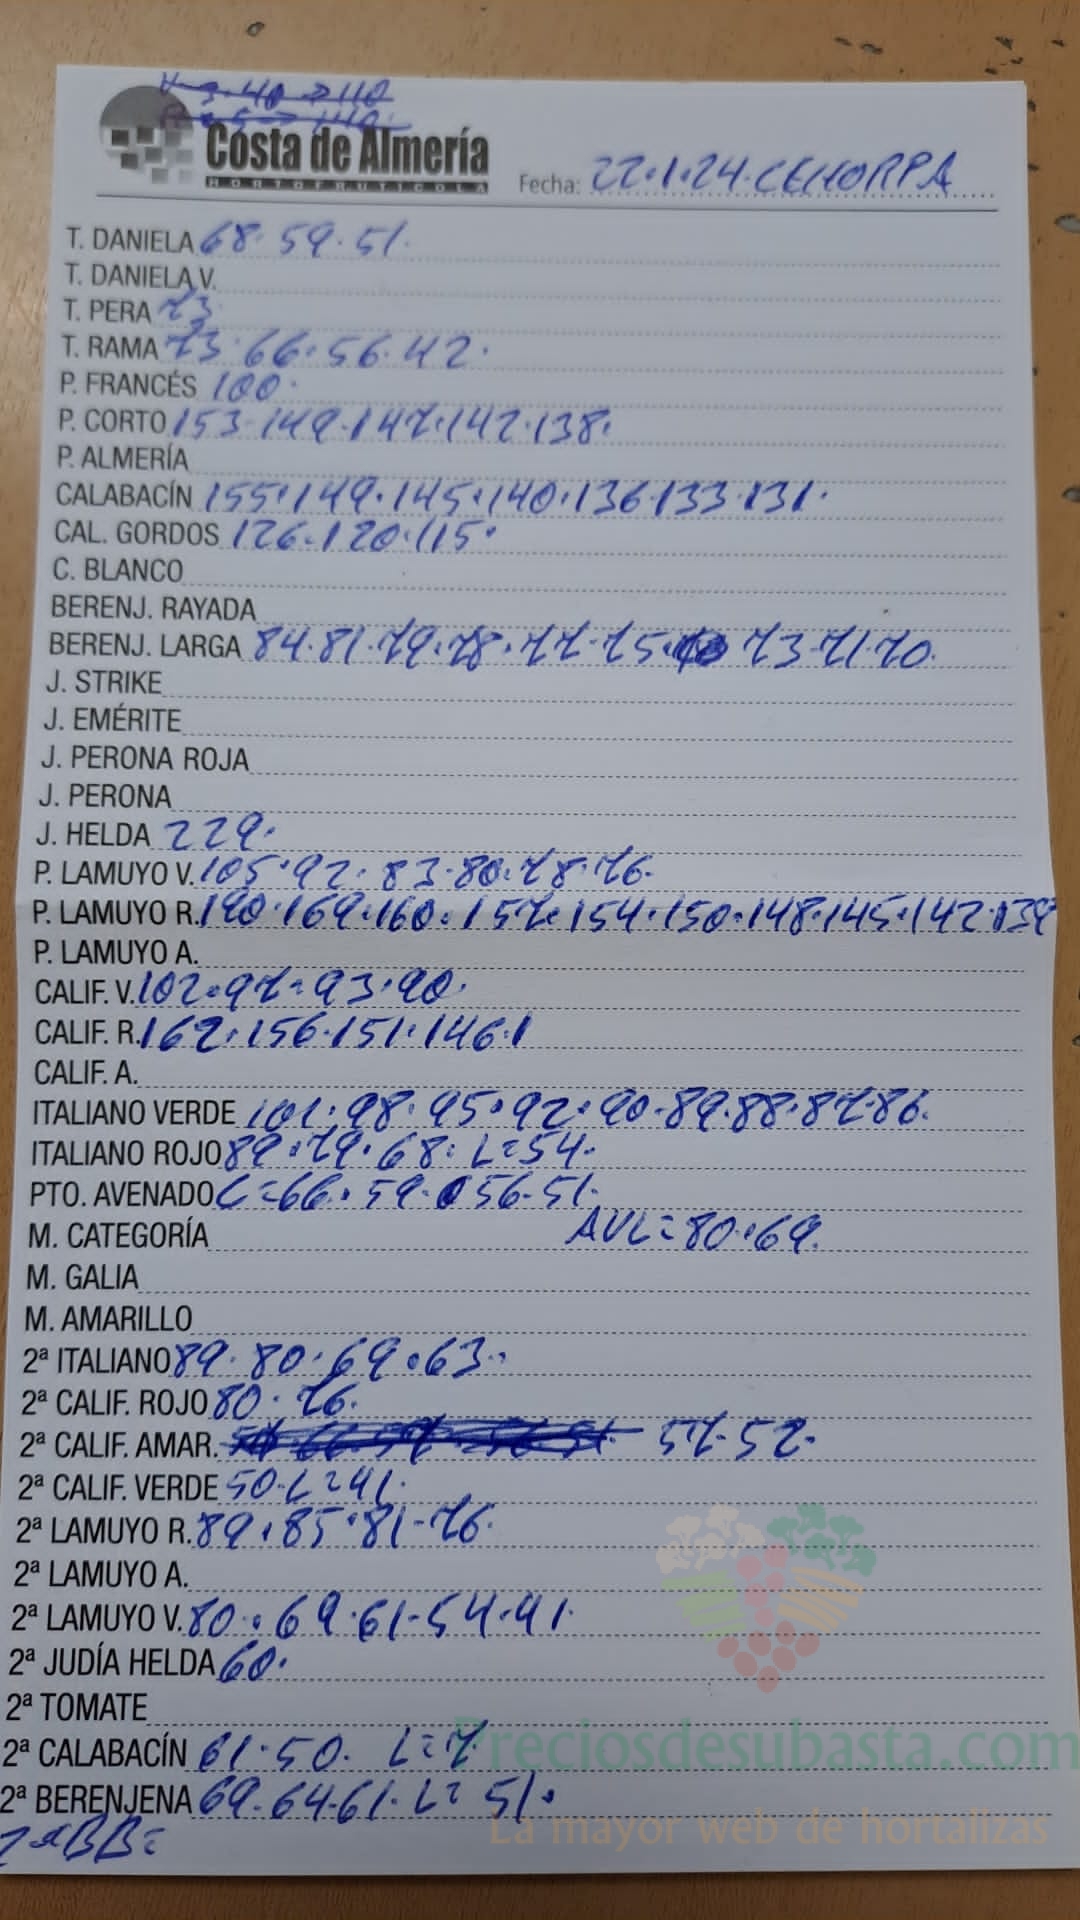 V=3.40→110
Costa de Almería
HORTOFRUTICOLA
Fecha: 22.1.24.CEHORPA
T. DANIELA 68.59.51.
T. DANELA V.
T. PERA 73
T. RAMA 73.66.56.42.
P. FRANCÉS 100.
P. CORTO 153.149.147.142.138.
P. ALMERÍA
CALABACÍN 155.149.145.140.136.133.131.
CAL. GORDOS 126.120.115.
C. BLANCO
BERENJ. RAYADA
BERENJ. LARGA 84.81.79.78.77.75. 73.71.70.
J. STRIKE
J. EMÉRITE
J. PERONA ROJA
J. PERONA
J. HELDA 229.
P. LAMUYO V. 105.92.83.80.78.76.
P. LAMUYO R. 190.169.160.157.154.150.148.145.142.139
P. LAMUYO A.
CALIF. V. 102.97.93.90.
CALIF. R. 162.156.151.146.1
CALIF. A.
ITALIANO VERDE 101.98.95.92.90.89.88.87.86.
ITALIANO ROJO 89.79.68. L=54.
PTO. AVENADO C=66.59.56.51.
AVL=80.69.
M. CATEGORÍA
M. GALIA
M. AMARILLO
2ª ITALIANO 89.80.69.63.
2ª CALIF. ROJO 80.76.
2ª CALIF. AMAR. 57.52.
2ª CALIF. VERDE 50.L=41.
2ª LAMUYO R. 89.85.81-76.
2ª LAMUYO A.
2ª LAMUYO V. 80.69.61-54.41.
2ª JUDÍA HELDA 60.
2ª TOMATE
2ª CALABACÍN 61.50. L=7
2ª BERENJENA 69.64.61. L=51.
2ªBB=
Preciosdesubasta.com
La mayor web de hortalizas